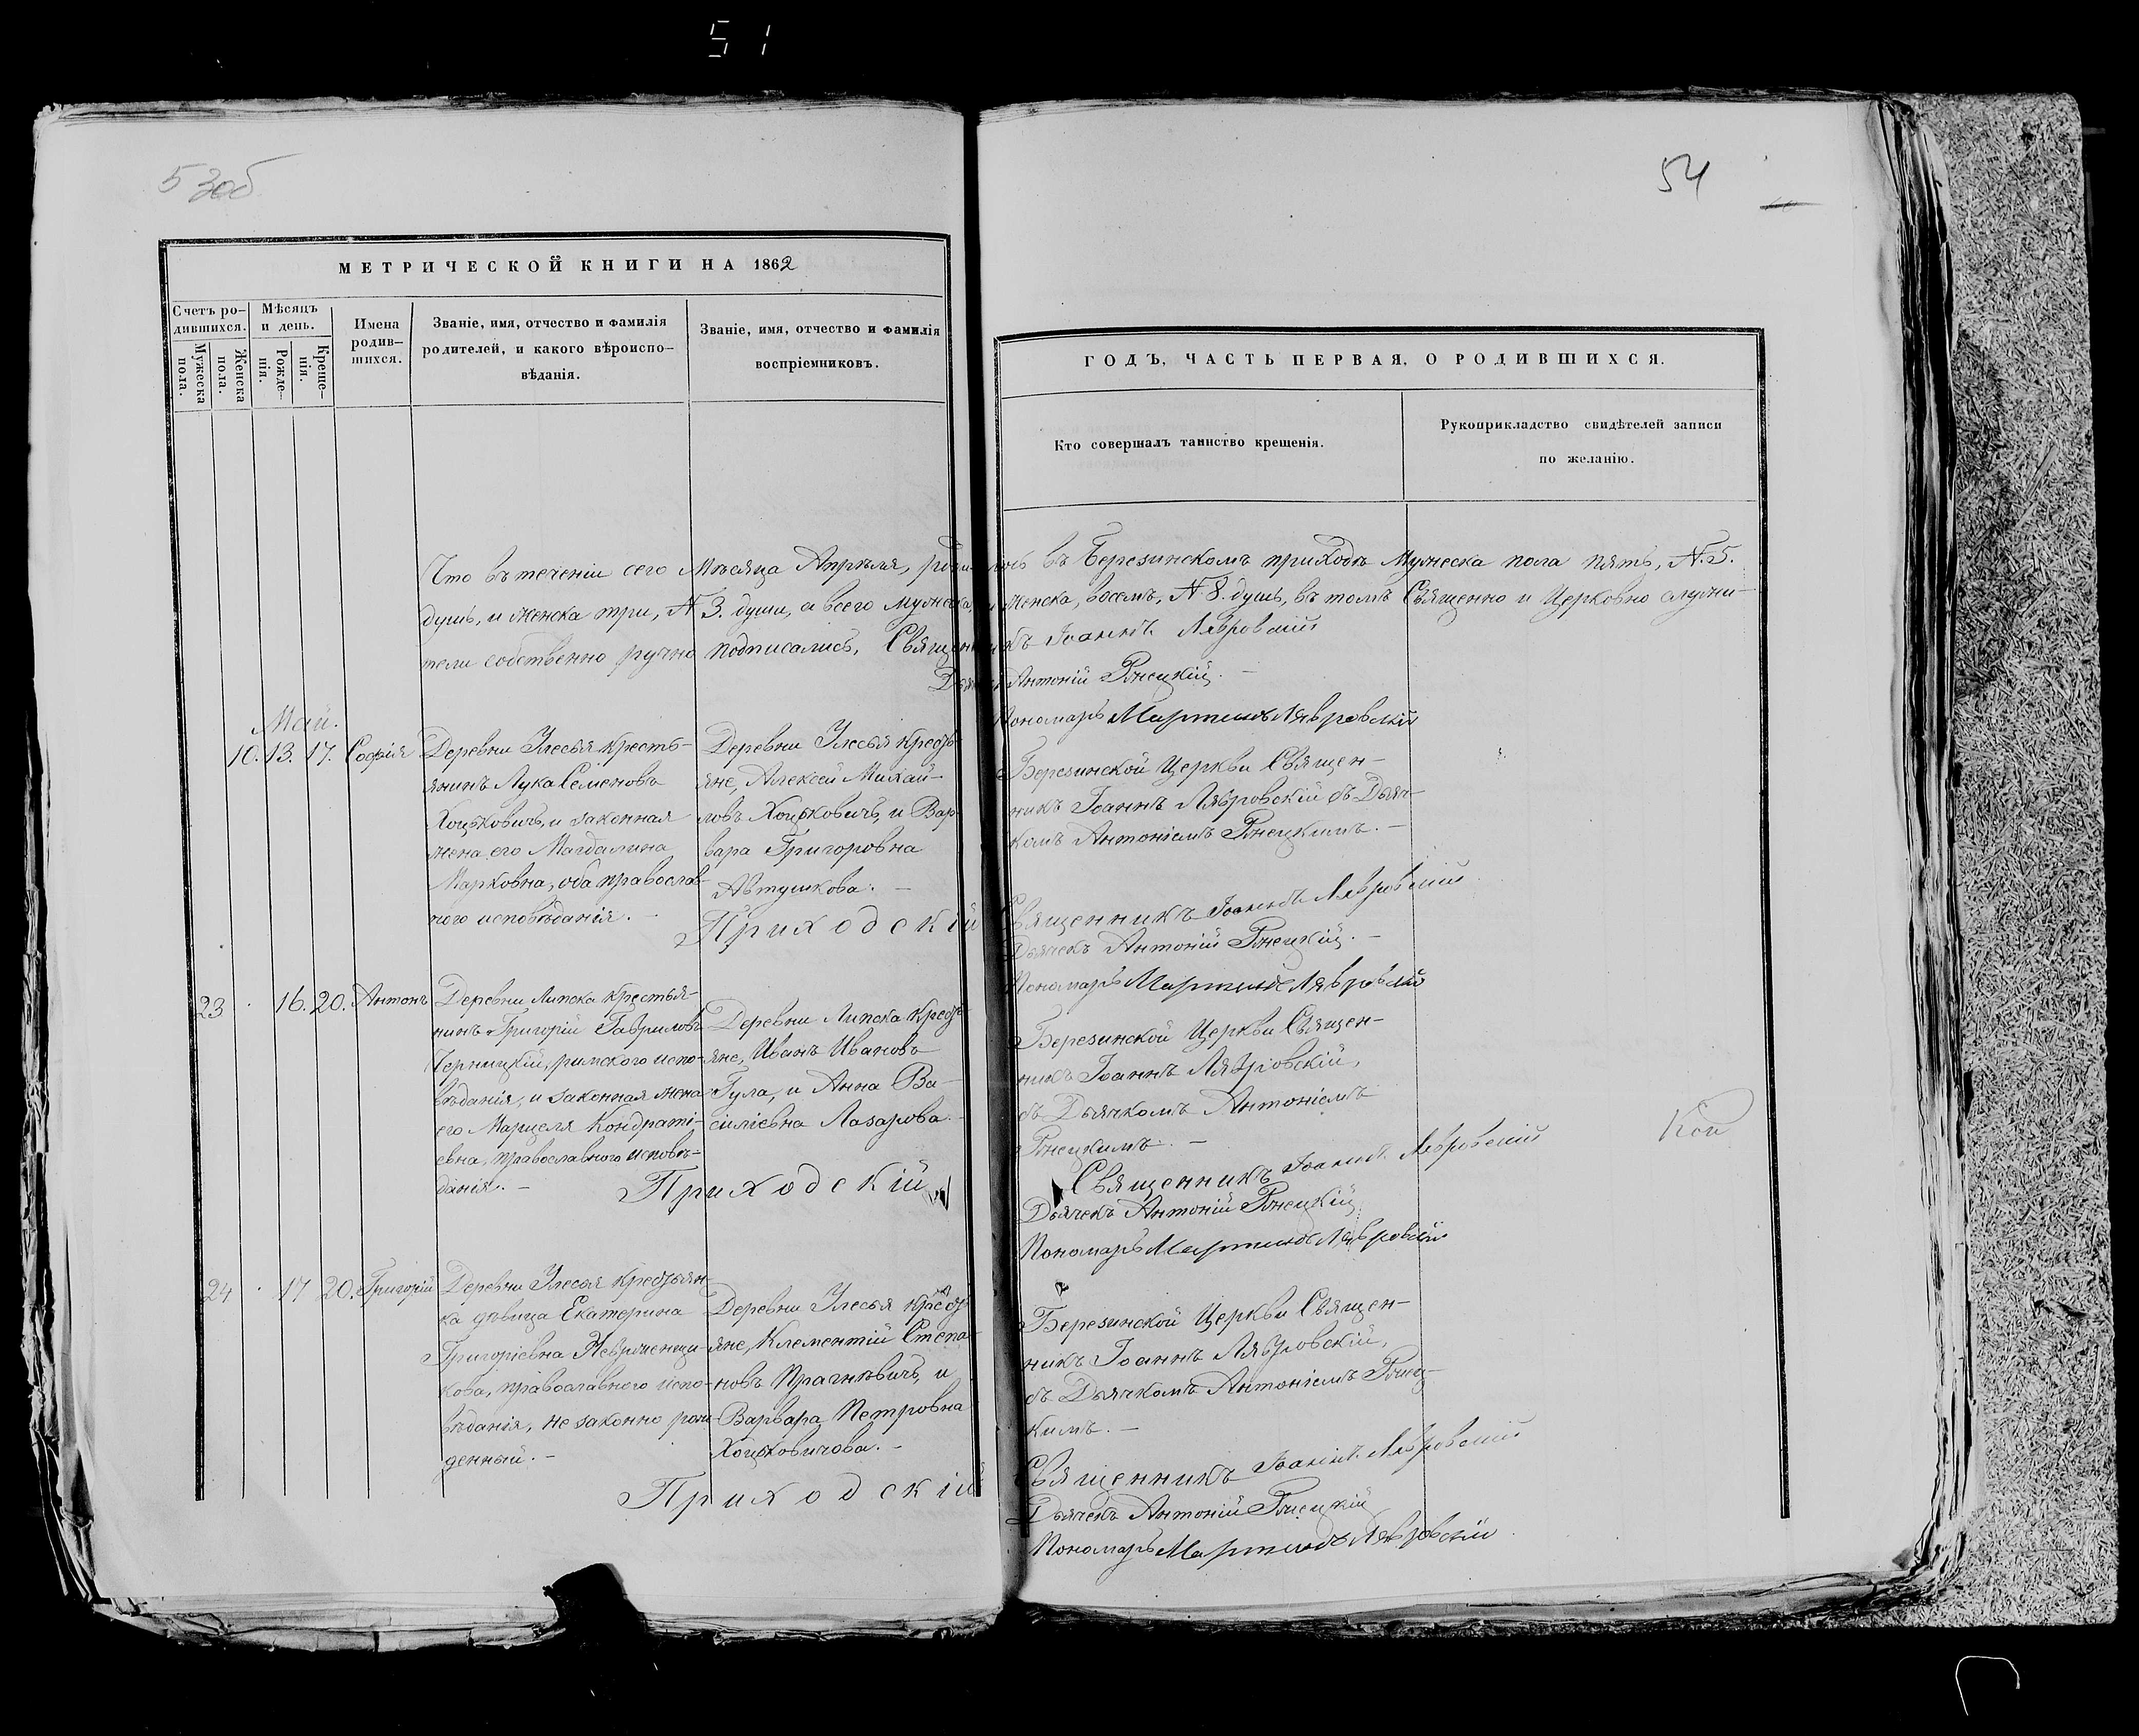 51
53об
54
МЕТРИЧЕСКОЙ КНИГИ НА 1862
Счетъ ро-
дившихся.
Мужеска
пола.
Женска
пола.
Мѣсяцъ
и день.
Рожде-
нія.
Креще-
нія.
Имена
родив-
шихся.
Званіе, имя, отчество и фамилія
родителей, и какого вѣроиспо-
вѣданія.
Званіе, имя, отчество и фамилія
воспріемниковъ.
ГОДЪ, ЧАСТЬ ПЕРВАЯ, О РОДИВШИХСЯ.
Кто совершалъ таинство крещенія.
Рукоприкладство свидѣтелей записи
по желанію.
Что въ теченіи сего Мѣсяца Апрѣля, родились въ Березинскомъ приходѣ Мужеска пола пять, №. 5.
душъ, и женска три, № 3. души, а всего мужеска, и женска, восемъ, № 8. душъ, въ томъ Священно и Церковно служи-
тели собственно ручно подписались, Священникъ Іоаннъ Лявровскій
Дьячекъ Антоній Рнецкій. -
Пономаръ Мартинъ Лявровскій
Май.
10. 13. 17. Софія
Деревни Улесья кресть-
янинъ Лука Семеновъ
Хоцьковичъ, и законная
жена его Магдалина
Марковна, оба православ-
ного исповѣданія. -
Деревни Улесья кресть-
яне, Алексѣй Михай-
ловъ Хоцьковичъ, и Вар-
вара Григоровна
Автушкова. -
Березинской Церкви Священ-
никъ Іоаннъ Лявровскій съ Дьяч-
комъ Антоніемъ Рнецкимъ. -
Приходскій Священникъ Іоаннъ Лявровскій
Дьячекъ Антоній Рнецкій. -
Пономаръ Мартинъ Лявровскій
23 16. 20. Антонъ
Деревни Липска крестья-
нинъ Григорій Гавриловъ
Черницкій, римского испо-
вѣданія, и законная жена
его Марцеля Кондраті-
евна, православного исповѣ-
данія. -
Деревни Липска кресть-
яне, Иванъ Ивановъ
Гула, и Анна Ва-
силіевна Лазарова. -
Березинской Церкви Священ-
никъ Іоаннъ Лявровскій,
съ Дьячкомъ Антоніемъ
Рнецкимъ. -
Приходскій Священникъ Іоаннъ Лявровскій
Дьячекъ Антоній Рнецкій
Пономаръ Мартинъ Лявровскій
24 17 20. Григорій
Деревни Улесья крестьян-
ка дѣвица Екатерина
Григоріевна
кова, православного испо-
вѣданія, не законно рож-
денный. -
Деревни Улесья кресть-
яне, Клементій Степа-
новъ Прагнѣвичъ, и
Варвара Петровна
Хоцьковичова. -
Березинской Церкви Священ-
никъ Іоаннъ Лявровскій,
съ Дьячкомъ Антоніемъ Рнец-
кимъ. -
Приходскій Священникъ Іоаннъ Лявровскій
Дьячекъ Антоній Рнецкій
Пономаръ Мартинъ Лявровскій